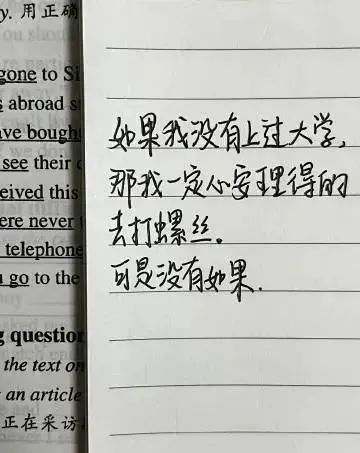 y. 用正确
ou shou
gone to Si
abroad s
ave bought
see their
eived this
ere never
telephone
go to the
g question
the text on
an article
正在采访
如果我没有上过大学,
那我一定心安理得的
去打螺丝.
可是没有如果.